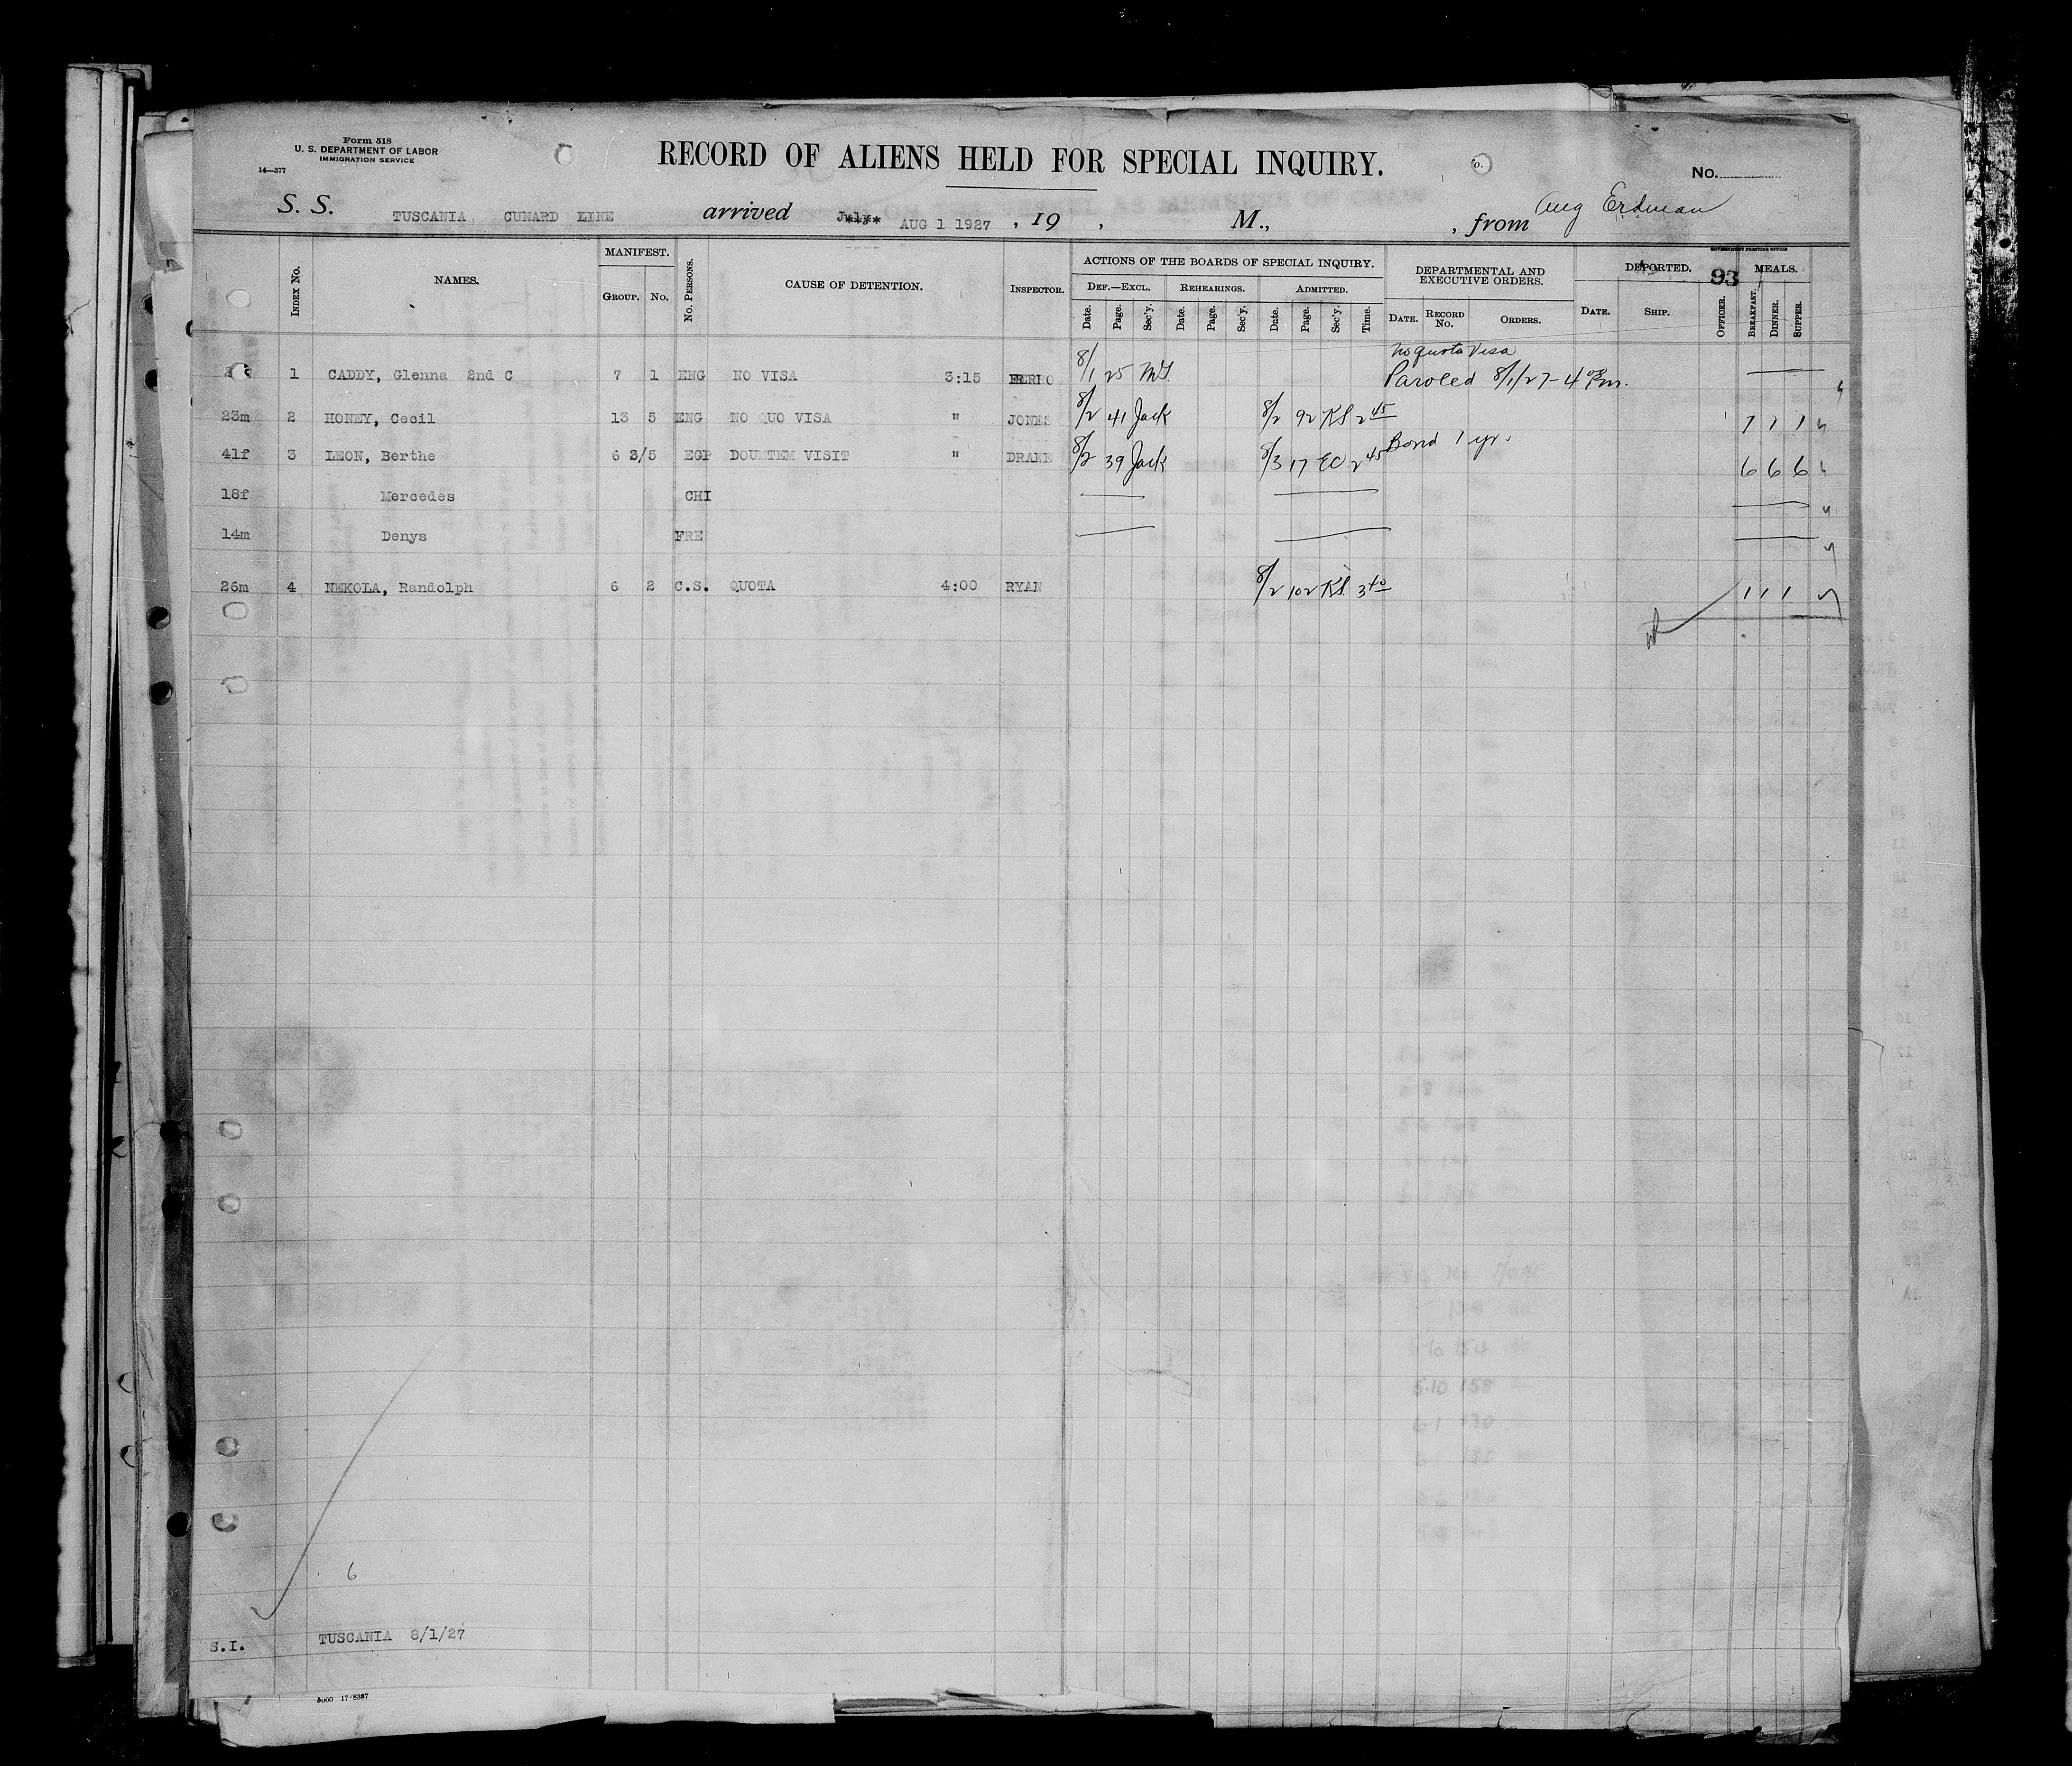 Form 518
U. S. DEPARTMENT OF LABOR
IMMIGRATION SERVICE
14—377
RECORD OF ALIENS HELD FOR SPECIAL INQUIRY.
No.
S. S. TUSCANIA CUNARD LINE arrived AUG 1 1927 , 19 , M., , from Aug Erdman
GOVERNMENT PRINTING OFFICE
93
Index No. NAMES. MANIFEST. Group. No. No. Persons. CAUSE OF DETENTION. Inspector. ACTIONS OF THE BOARDS OF SPECIAL INQUIRY. DEPARTMENTAL AND EXECUTIVE ORDERS. DEPORTED. MEALS.
Def.—Excl. Rehearings. Admitted.
Date. Page. Sec'y. Date. Page. Sec'y. Date. Page. Sec'y. Time. Date. Record No. Orders. Date. Ship. Officer. Breakfast. Dinner. Supper.
No quota Visa
1 CADDY, Glenna 2nd C 7 1 ENG NO VISA 3:15 8/1 25 Paroled 8/1/27 - 4 00 Pm.
23m 2 HONEY, Cecil 13 5 ENG NO QUO VISA " JONES 8/2 41 Jack 8/2 92 KS 2 45 1 1 1
41f 3 LEON, Berthe 6 3/5 EGP DOU TEM VISIT " DRAKE 8/2 39 Jack 8/3 17 EC 2 45 Bond 1 yr. 6 6 6
18f Mercedes CHI
14m Denys FRE
26m 4 NEKOLA, Randolph 6 2 C.S. QUOTA 4:00 RYAN 8/2 102 KS 3 40 1 1 1
6
S.I. TUSCANIA 8/1/27
5000 17-8387